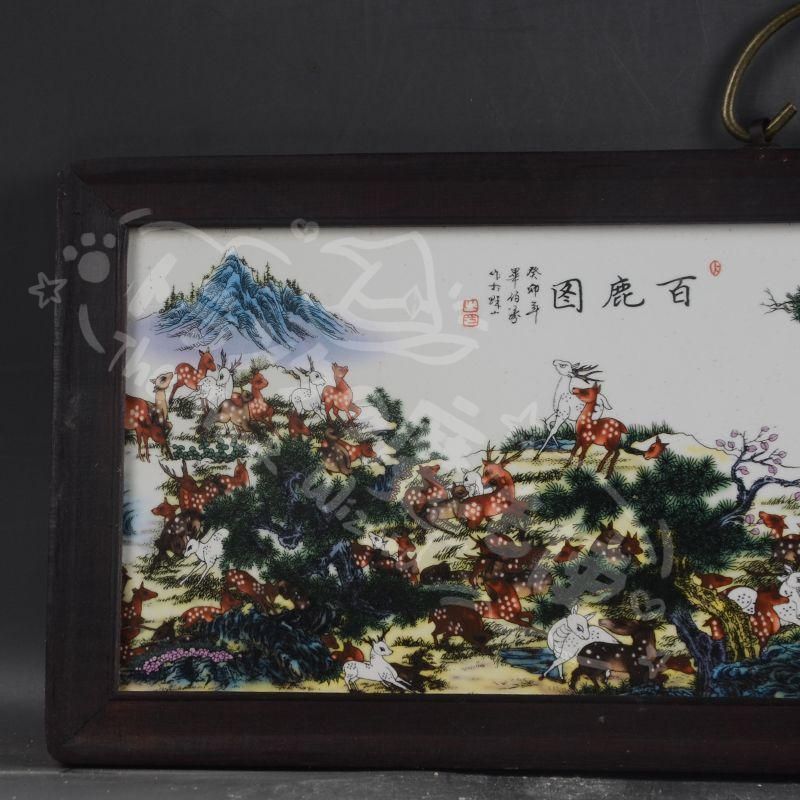 百鹿图
癸卯年
畢伯濤
作於珠山
The
Wiz